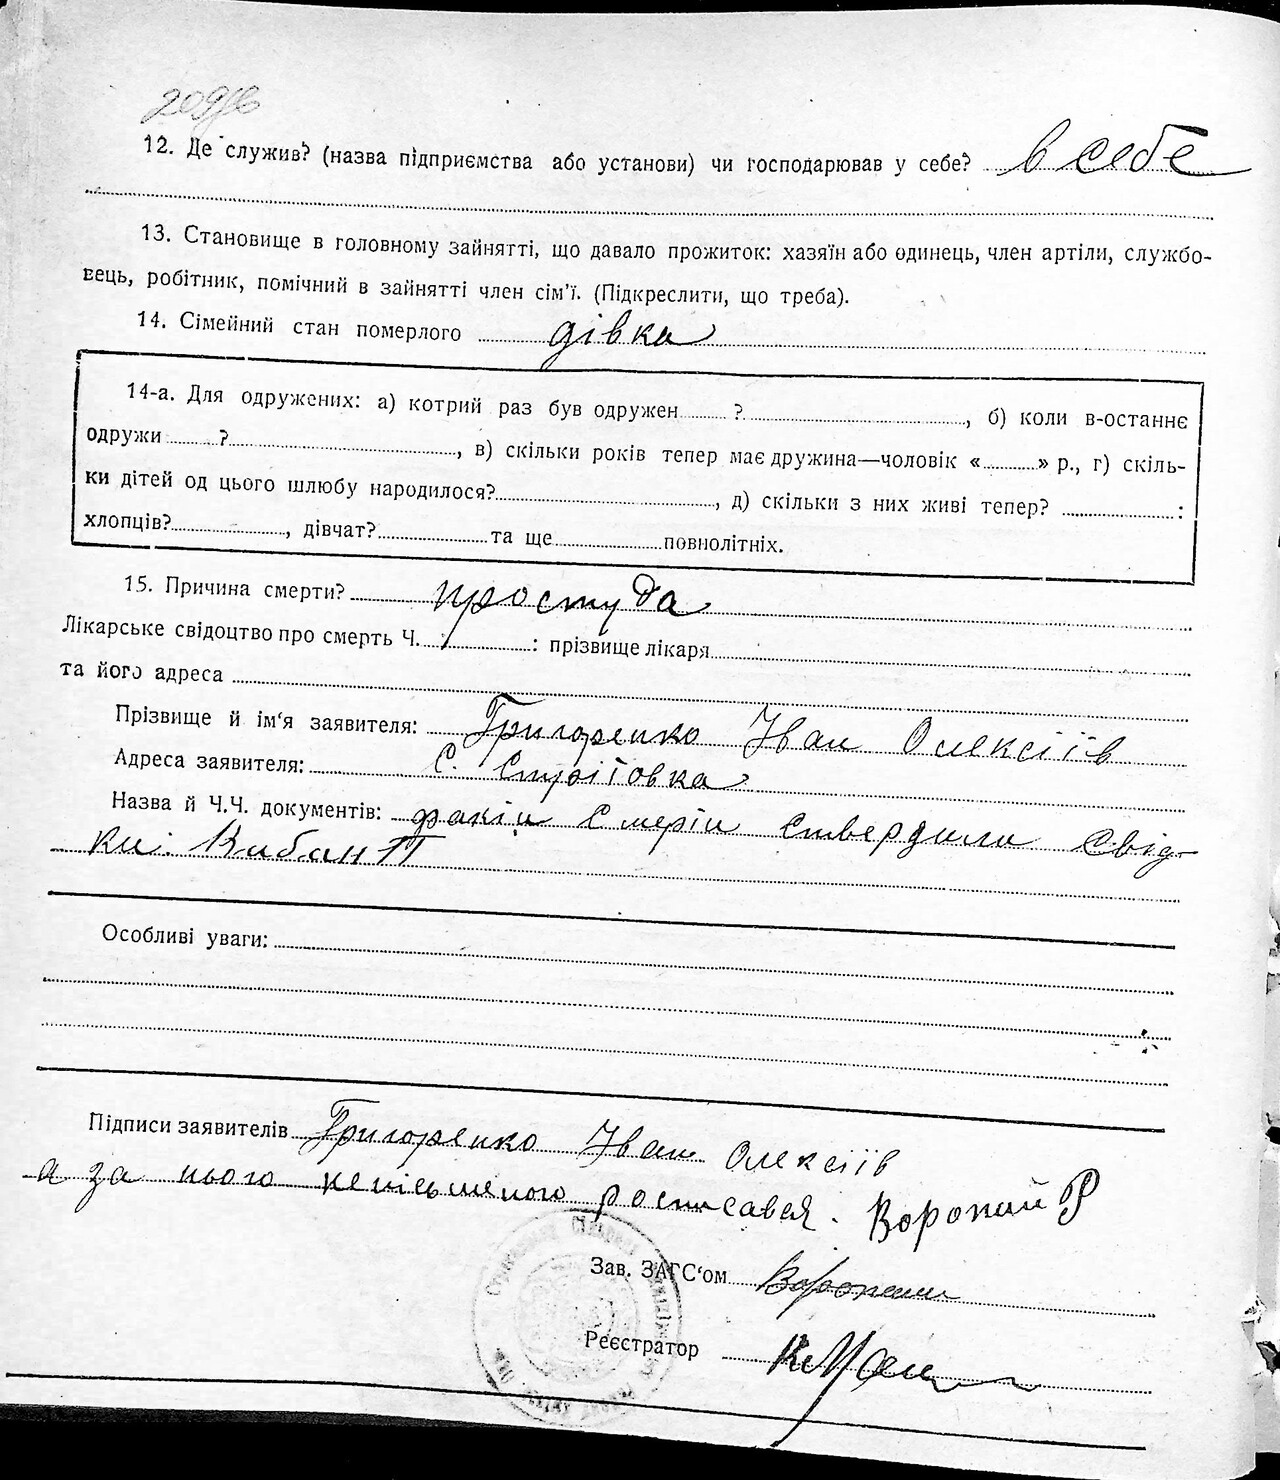 209
12. Де служив? (назва підприємства або установи) чи господарював у себе? в себе
13. Становище в головному зайнятті, що давало прожиток: хазяїн або одинець, член артіли, службо-
вець, робітник, помічний в зайнятті член сім'ї. (Підкреслити, що треба).
14. Сімейний стан померлого дівка
14-а. Для одружених: а) котрий раз був одружен ? , б) коли в-останнє
одружи ? , в) скільки років тепер має дружина—чоловік « » р., г) скіль-
ки дітей од цього шлюбу народилося? , д) скільки з них живі тепер? :
хлопців? , дівчат? та ще повнолітніх.
15. Причина смерти? простуда
Лікарське свідоцтво про смерть Ч. : прізвище лікаря
та його адреса
Прізвище й ім'я заявителя: Григоренко Іван Олексіїв
Адреса заявителя: с.
Назва й Ч.Ч. документів: смерти ствердили свід-
ки: Кабан П
Особливі уваги:
Підписи заявителів Григоренко Іван Олексіїв
а за нього неписьменого росписався. Воропай Р
Зав. ЗАГС'ом Воропай
Реєстратор